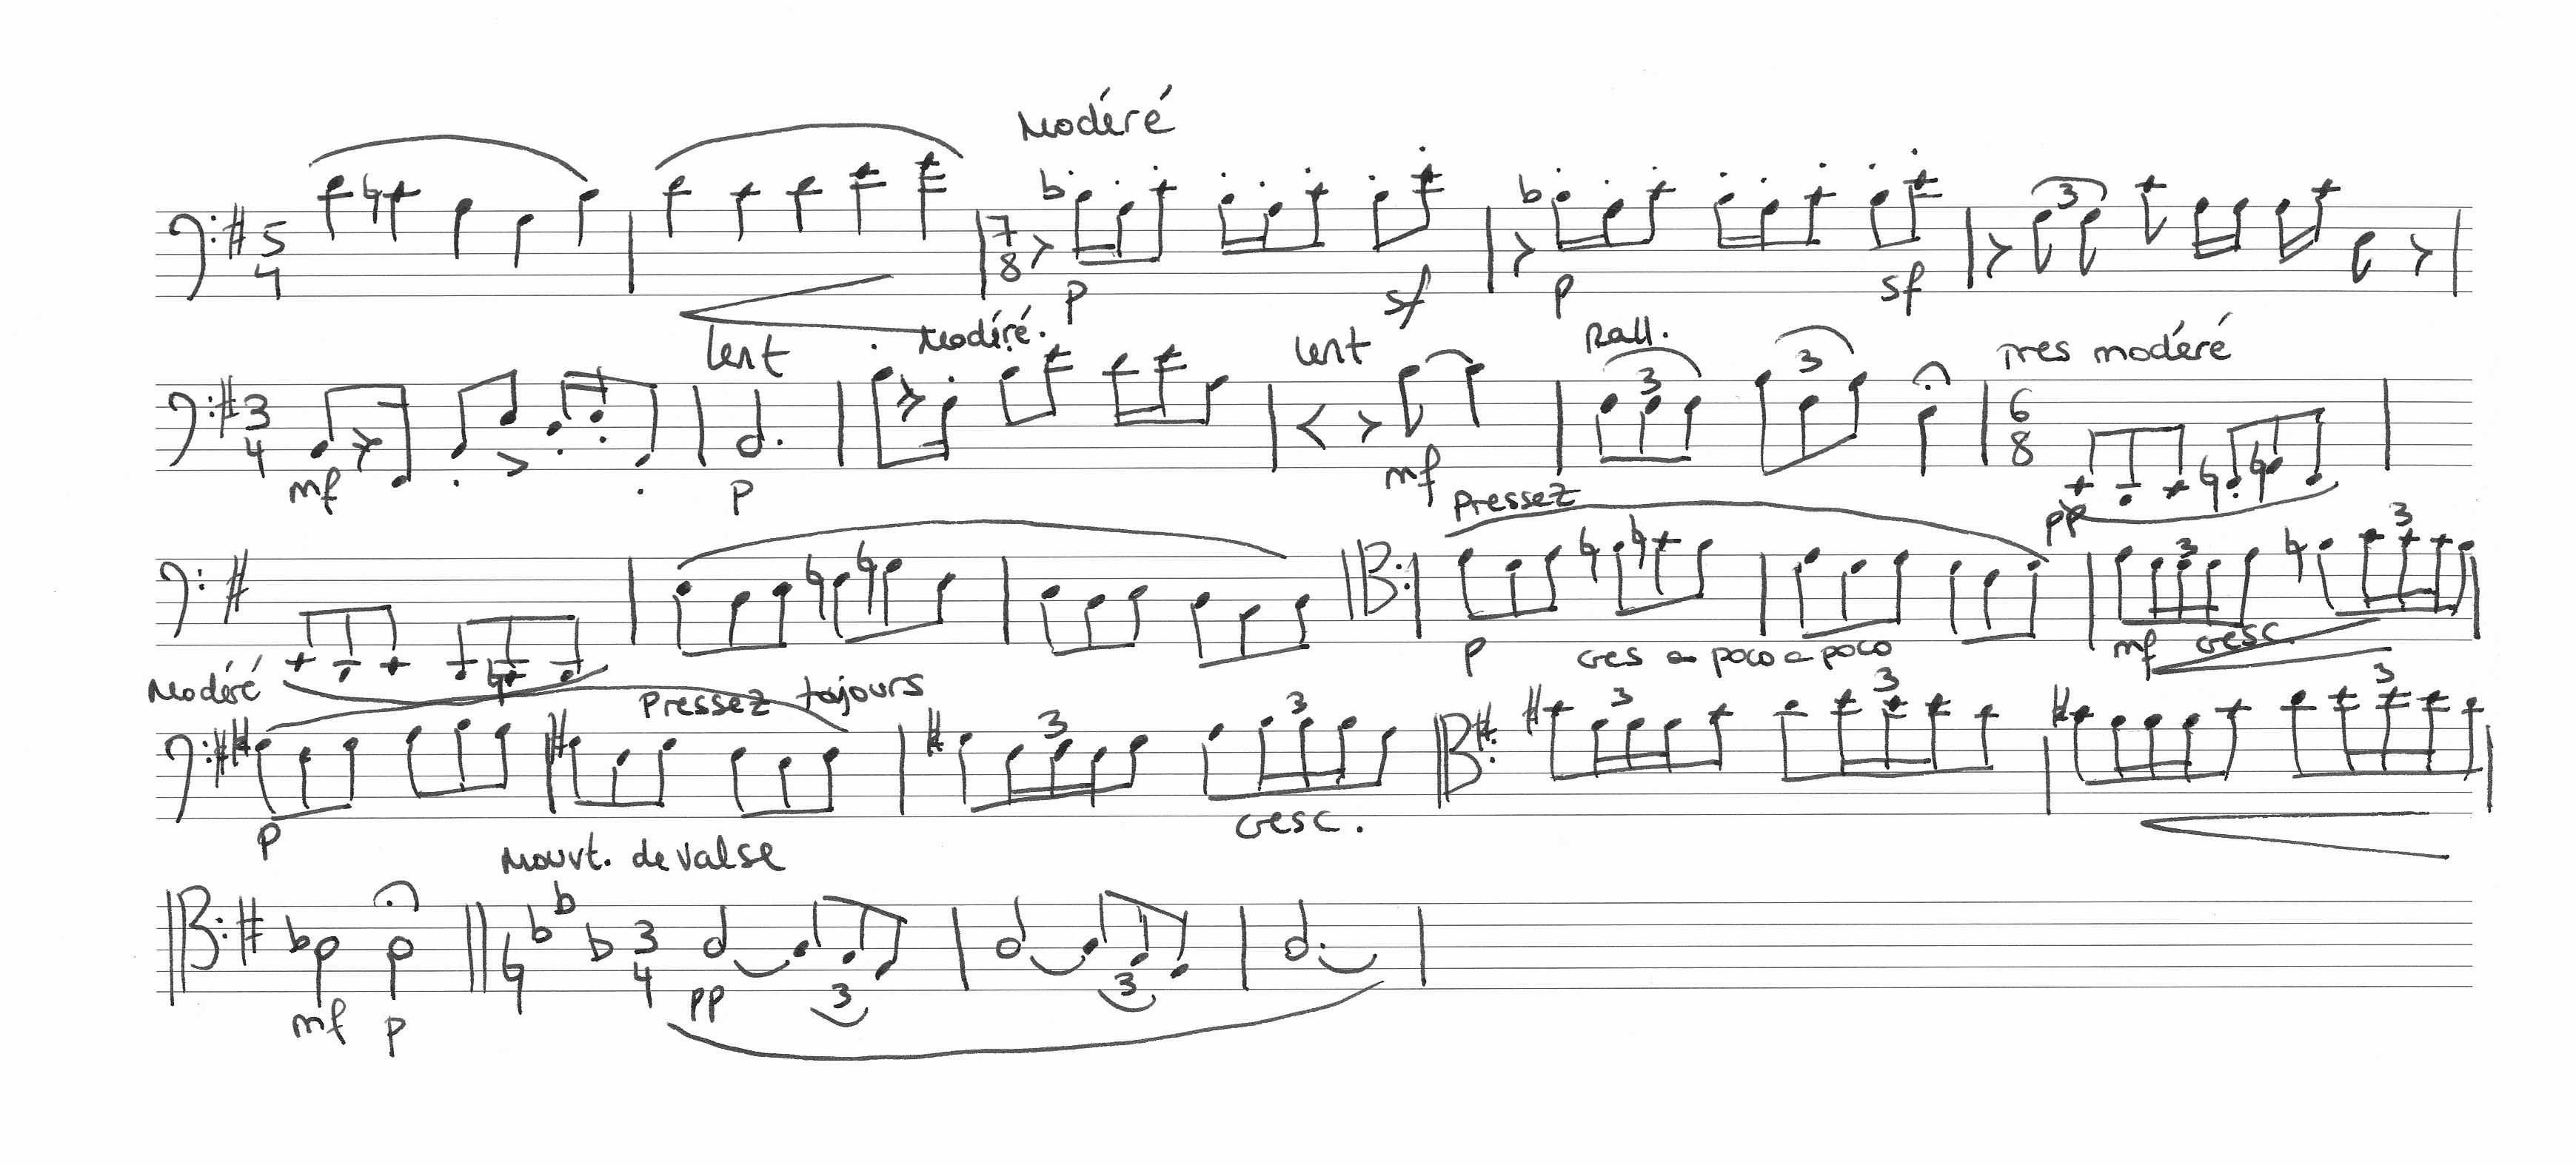 Modéré
3
5 7
4 8
p sf p sf
lent Modéré. lent Rall. Tres modéré
3 3
3 6
4 8
mf p mf pp
Pressez
3 3
p cres a poco a poco mf cresc.
Modéré Pressez toujours
3 3 3 3
p cresc.
Mouvt. de valse
3
4
mf p pp 3 3